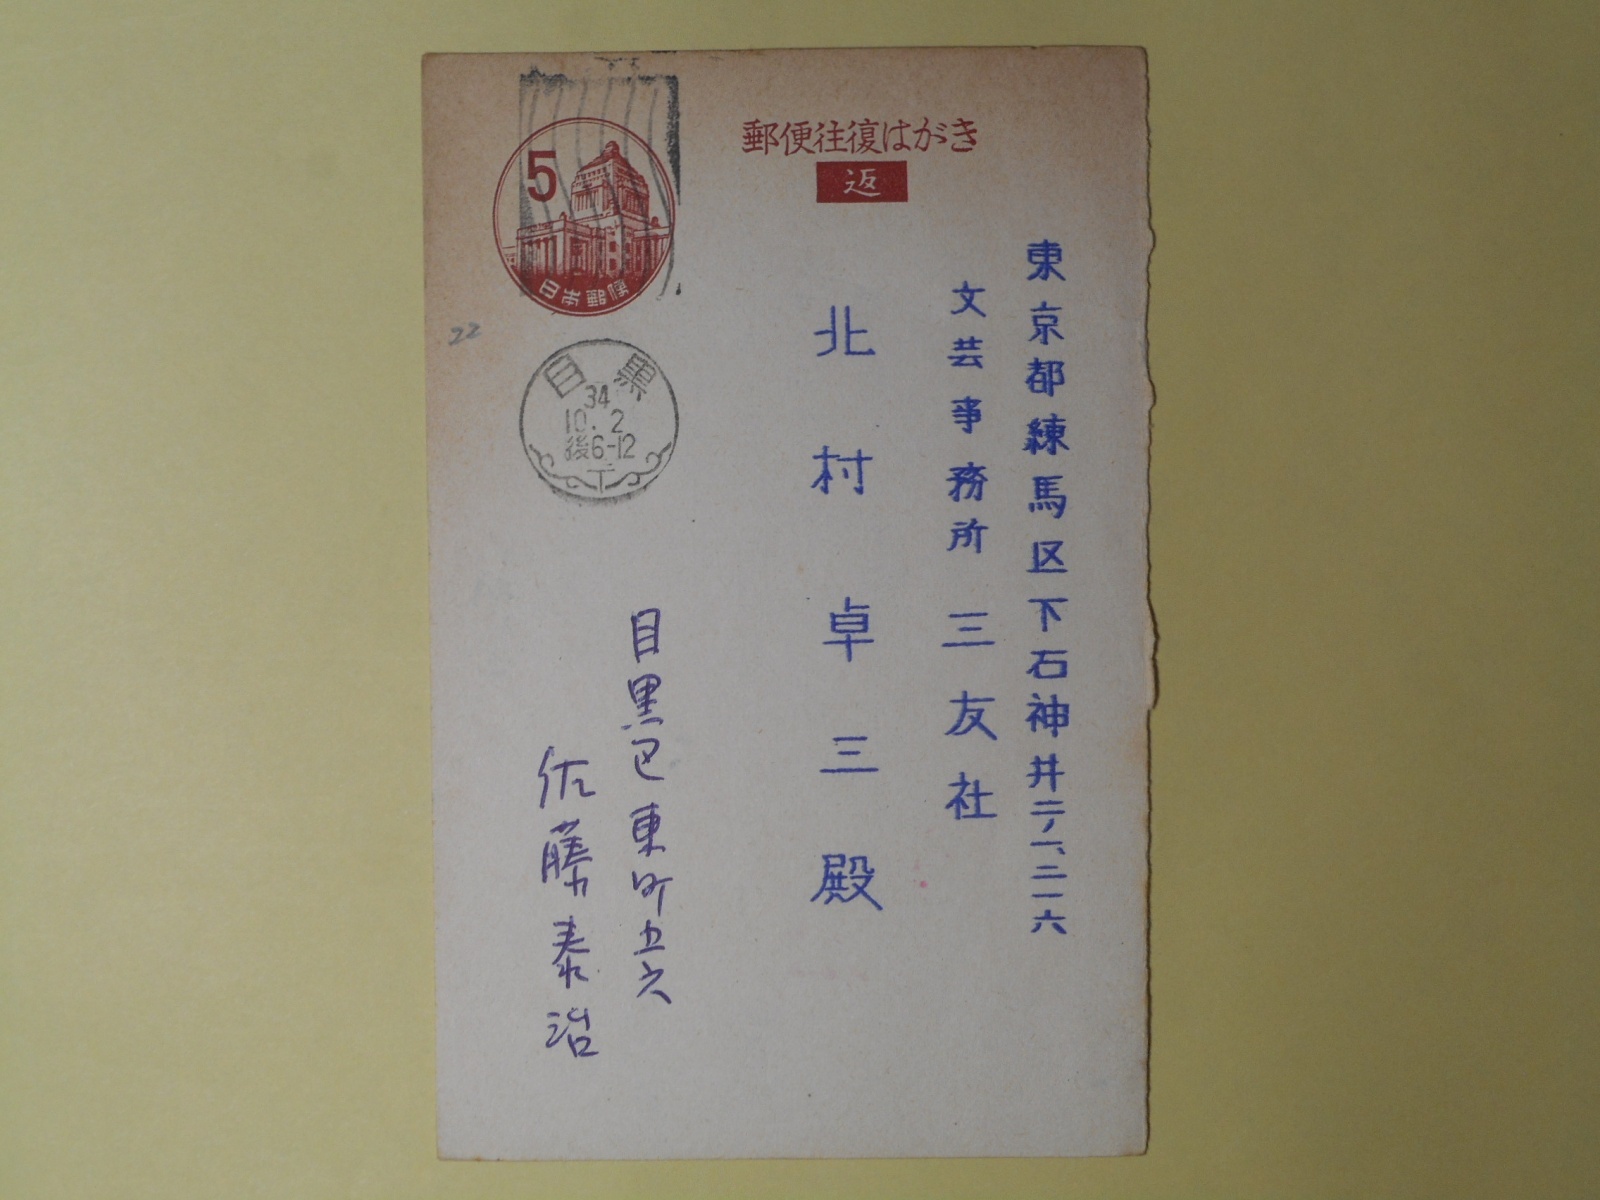 郵便往復はがき
返
東京都練馬区下石神井二ノ一、三一六
文芸事務所 三友社
北村卓三殿
5
日本郵便
22
目黒
34
10.2
後6-12
下
目黒区東町五六
佐藤泰治